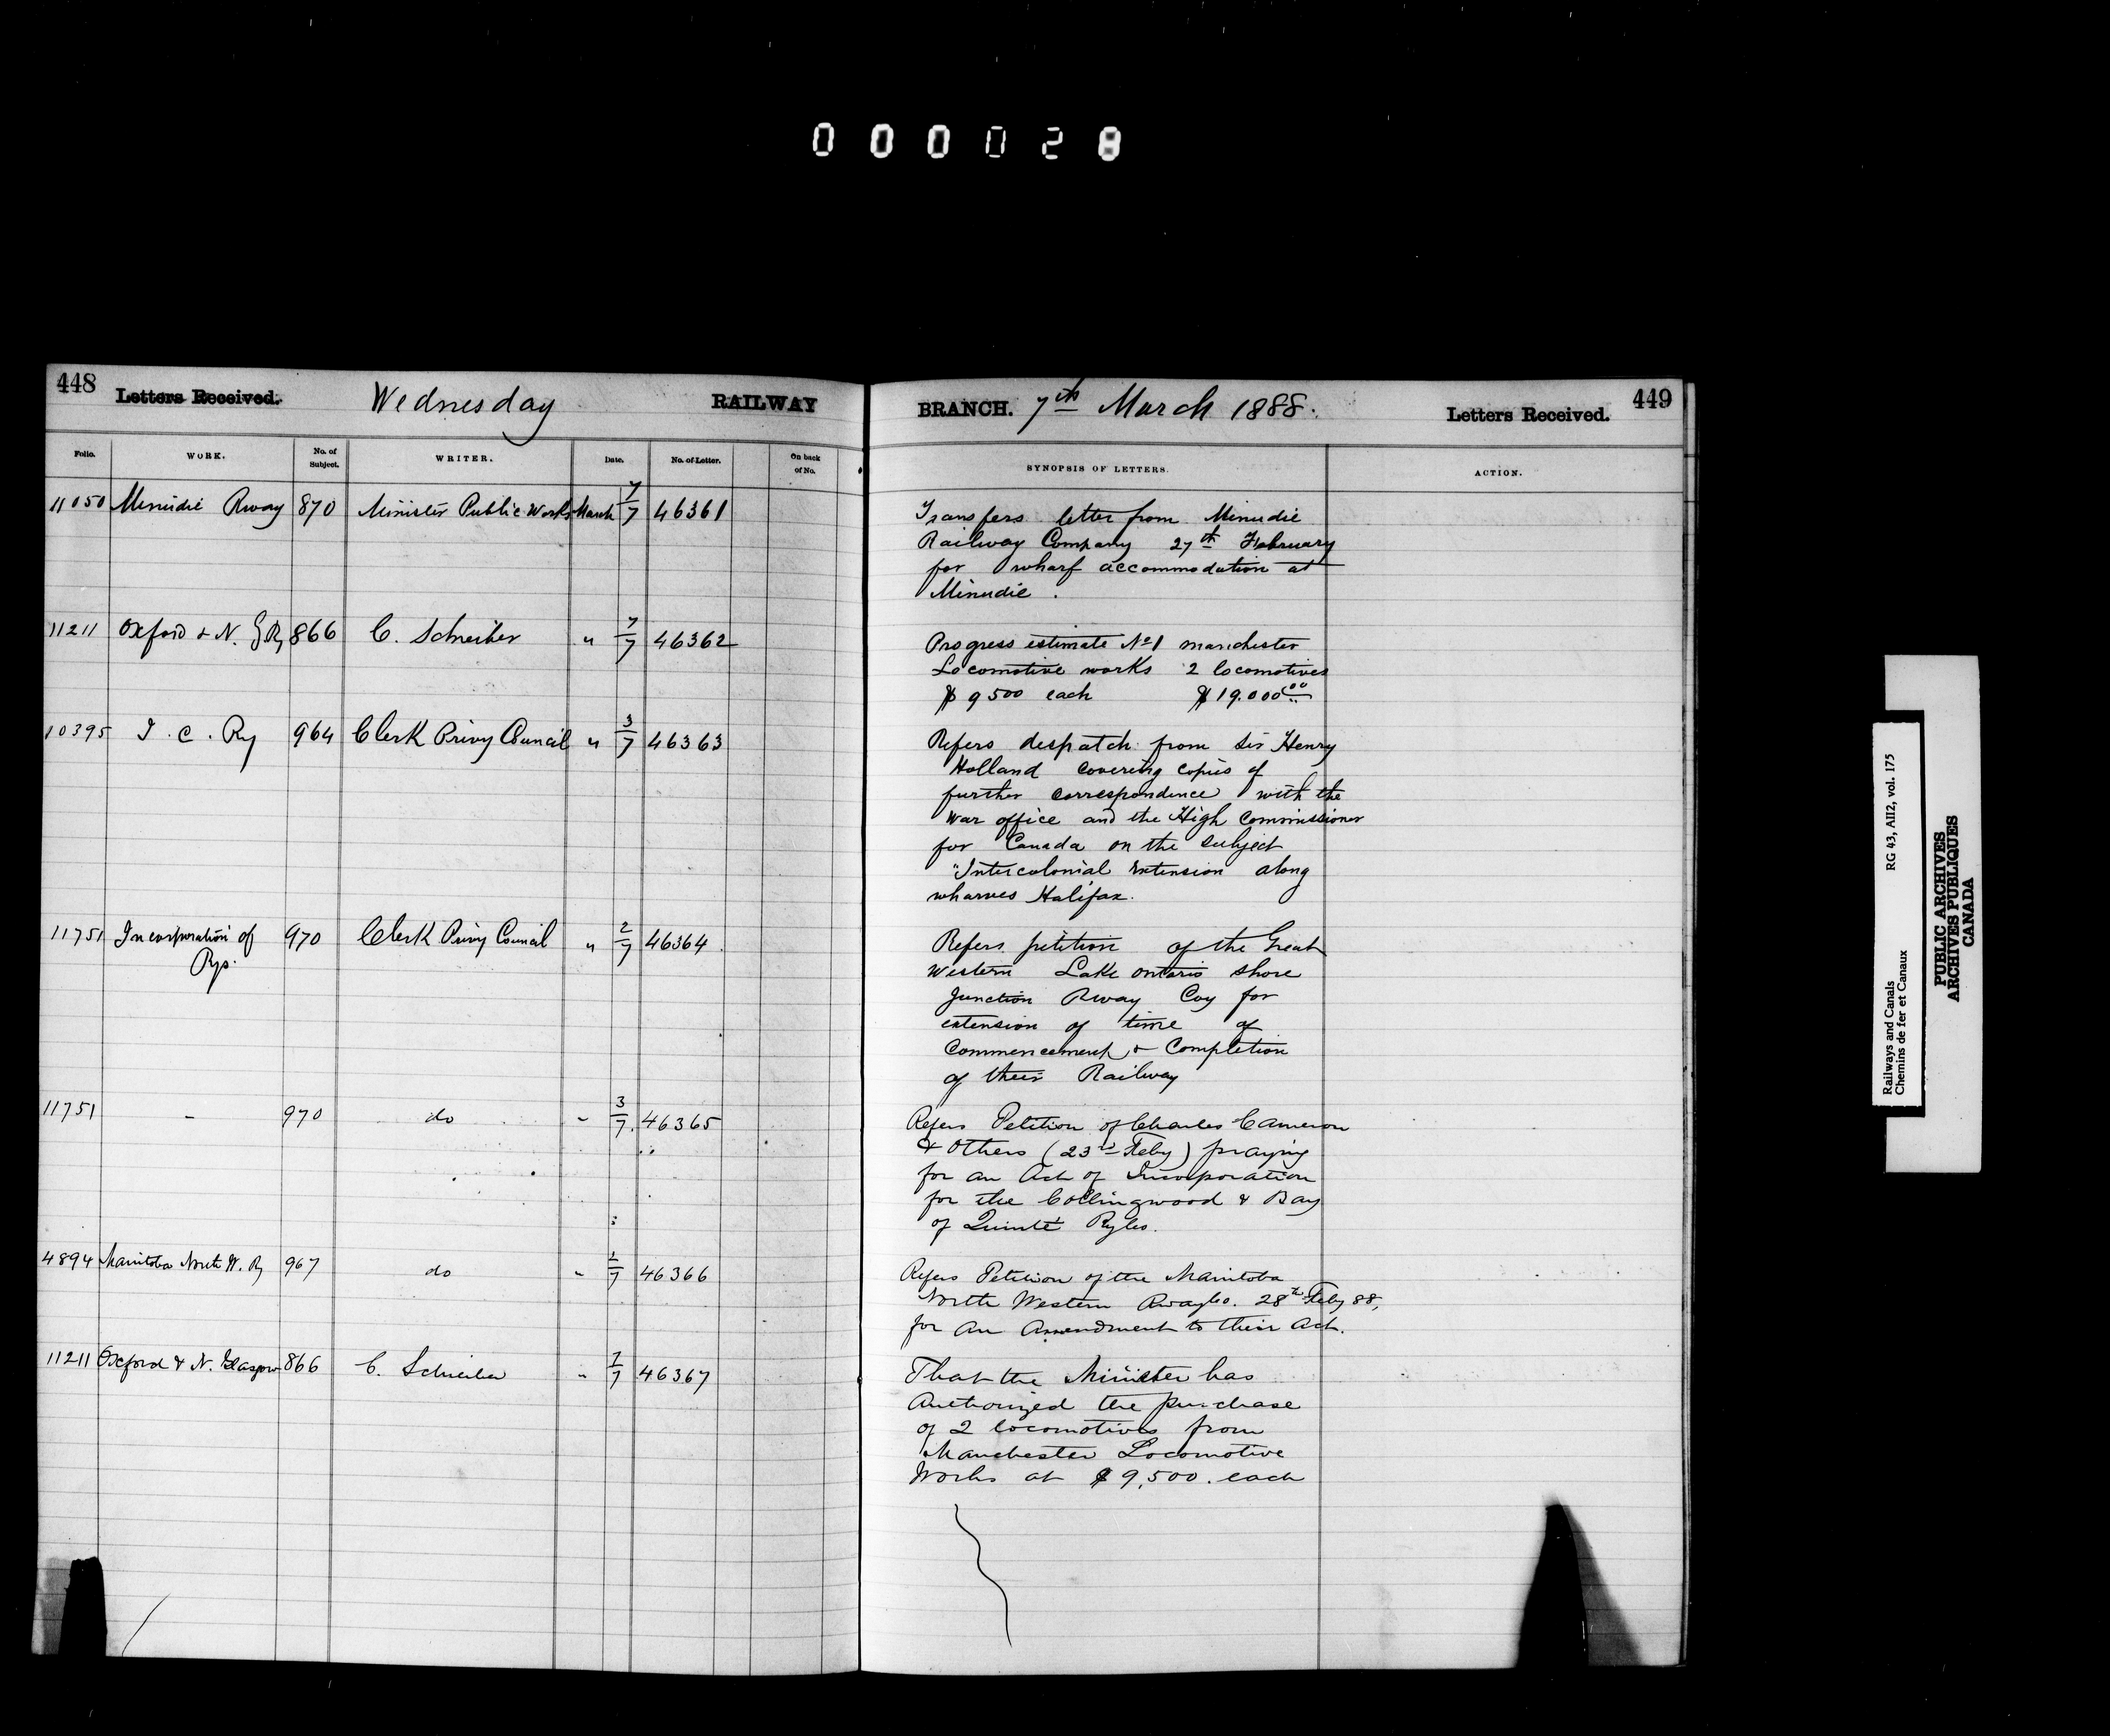 000028
448 Letters Received. Wednesday RAILWAY
BRANCH. 7th March 1888. Letters Received. 449
Folio. WORK. No. of Subject. WRITER. Date. No. of Letter. On back of No.
SYNOPSIS OF LETTERS. ACTION.
11050 Minudie Rway 870 Minister Public Works March 7/7 46361
Transfers letter from Minudie
Railway Company 27th February
for wharf accommodation at
Minudie.
11211 Oxford & N. G Ry 866 C. Schreiber " 7/7 46362
Progress estimate No 1 manchester
Locomotive works 2 locomotives
$9500 each $19.000.00
10395 I. C. Ry 964 Clerk Privy Council " 3/7 46363
Refers despatch from Sir Henry
Holland covering copies of
further correspondence with the
War office and the High Commissioner
for Canada on the subject
"Intercolonial extension along
wharves Halifax.
11751 Incorporation of 970 Clerk Privy Council " 2/7 46364
Rys.
Refers petition of the Great
Western Lake ontario shore
Junction Rway Coy for
extension of time of
Commencement & Completion
of their Railway
11751 - 970 do " 3/7 46365
Refers Petition of Charles Cameron
& Others (23rd Feby) praying
for an Act of Incorporation
for the Collingwood & Bay
of Quinté Ry Co.
4894 Manitoba North W. Ry 967 do " /7 46366
Refers Petition of the Manitoba
North Western Rway Co. 28th Feby 88,
for an Amendment to their Act.
11211 Oxford & N. Glasgow 866 C. Schreiber " 7/7 46367
That the Minister has
Authorized the purchase
of 2 locomotives from
Manchester Locomotive
Works at $9,500. each
Railways and Canals RG 43, AII2, vol. 175
Chemins de fer et Canaux
PUBLIC ARCHIVES
ARCHIVES PUBLIQUES
CANADA